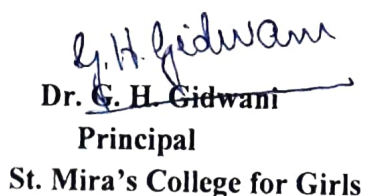 G. H. Gidwani
Dr. G. H. Gidwani
Principal
St. Mira's College for Girls